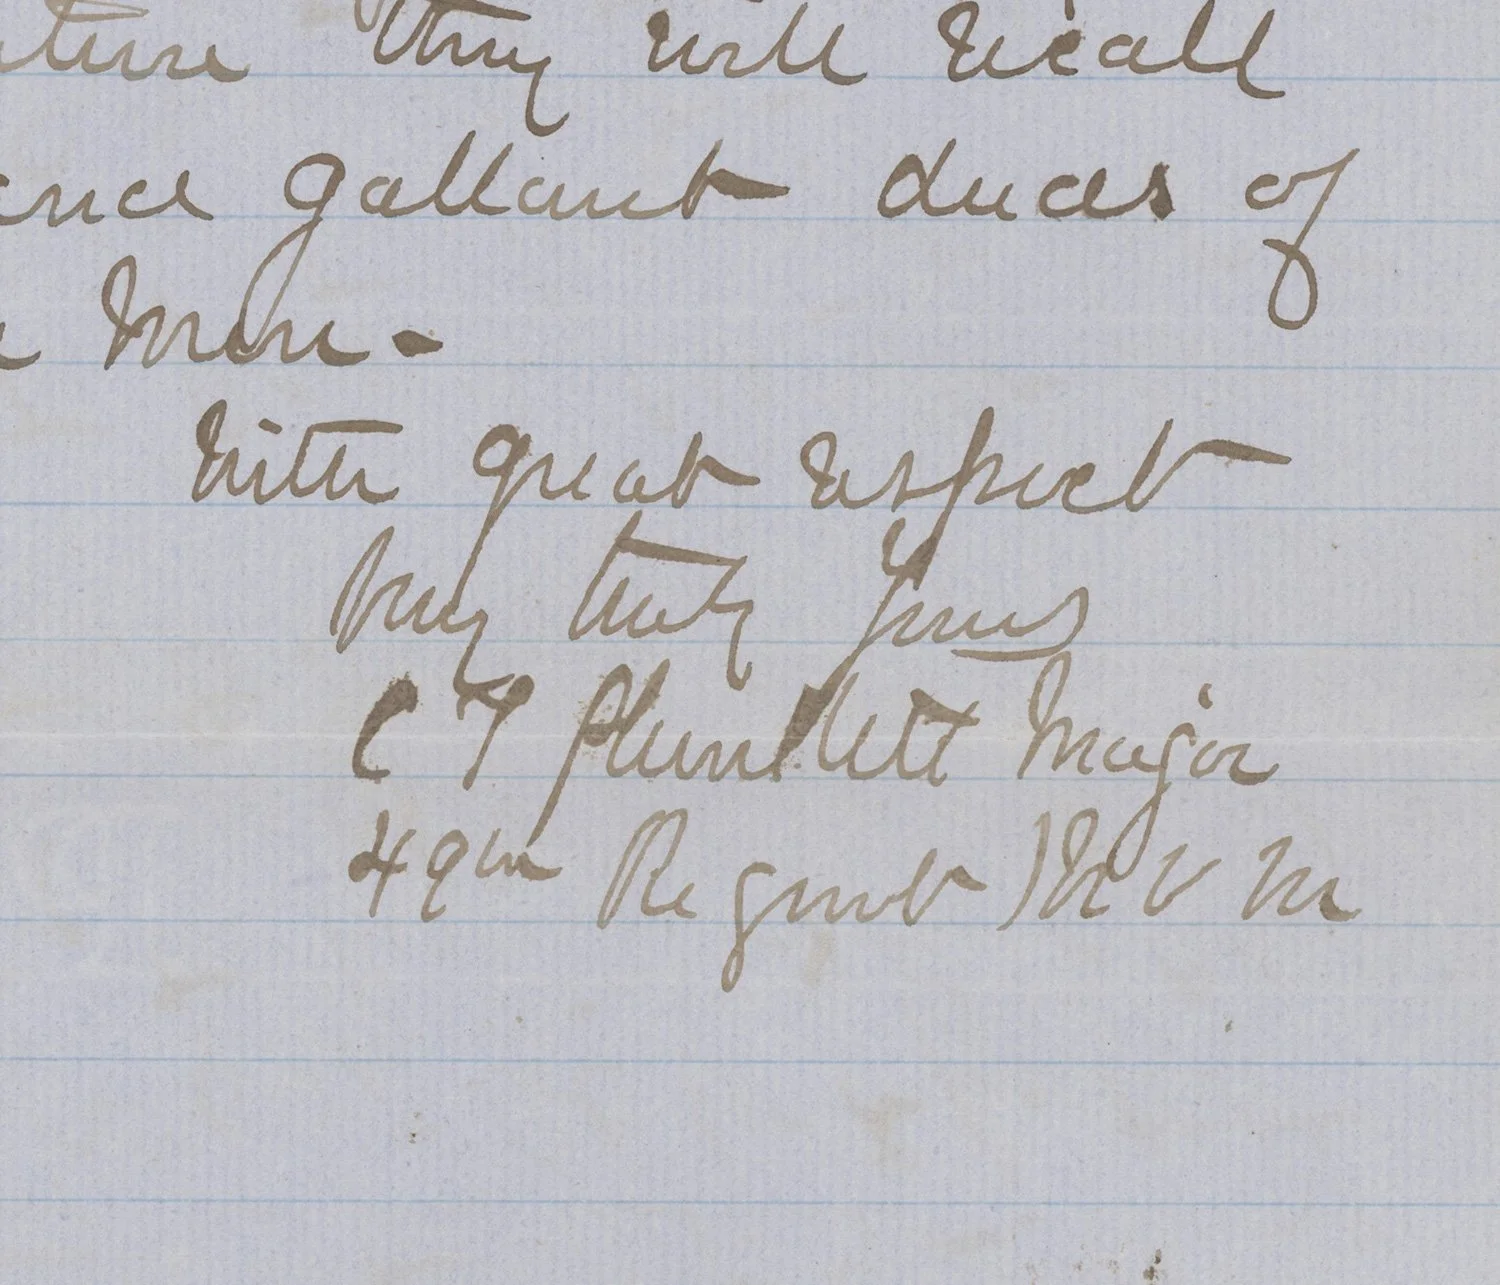 they will recall
gallant deeds of
men.
With great respect
Very truly Yours
C T Plunkett Major
49th Regmt M V M